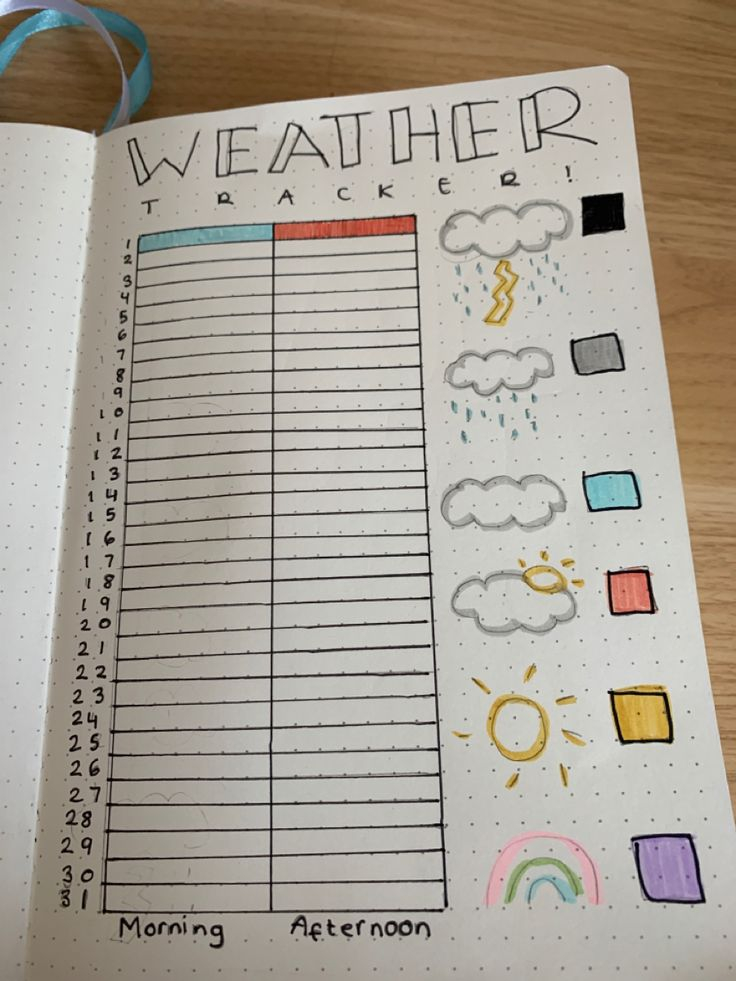 WEATHER
TRACKER!
1
2
3
4
5
6
7
8
9
10
11
12
13
14
15
16
17
18
19
20
21
22
23
24
25
26
27
28
29
30
31
Morning Afternoon